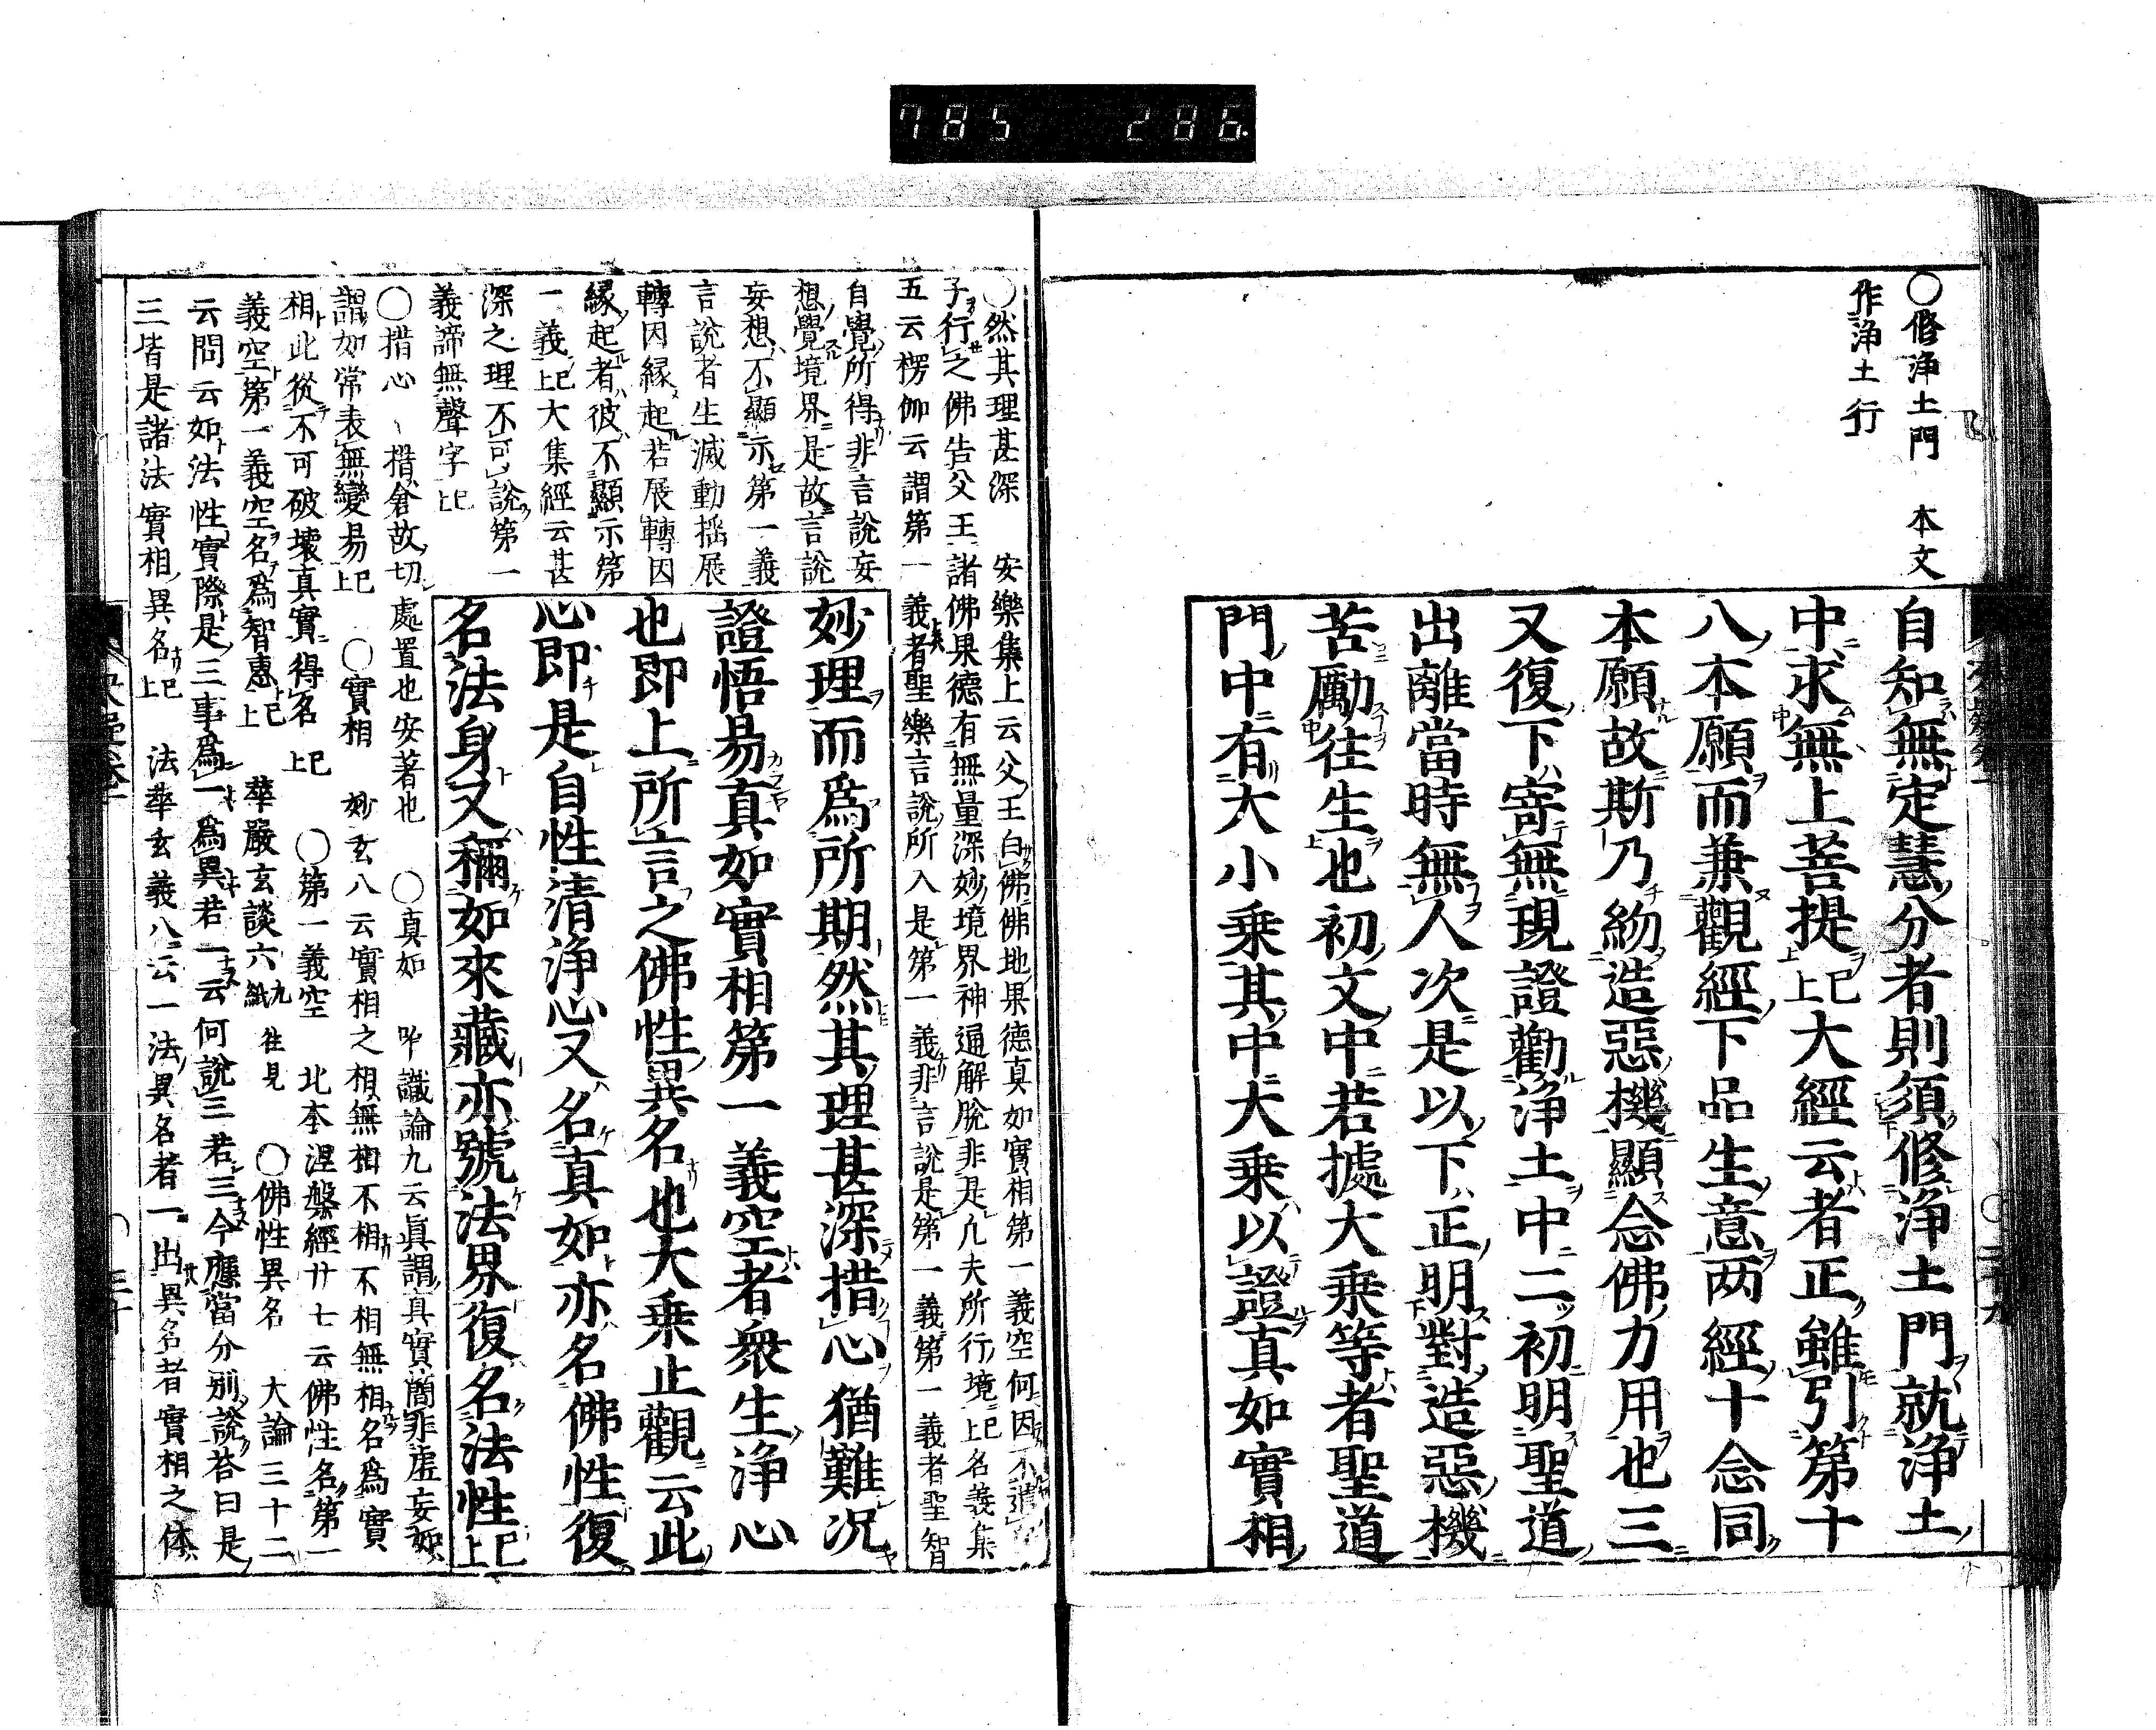 785 286
○修淨土門 本文
作淨土行
自知無定慧分者則須修淨土門就淨土
中求無上菩提已上大經云者正雖引第十
八本願而兼觀經下品生意两經十念同
本願故斯乃約造惡機顯念佛力用也三
又復下寄無現證勸淨土中二初明聖道
出離當時無人次是以下正明對造惡機
苦勵往生也初文中若據大乘等者聖道
門中有大小乘其中大乘以證真如實相
○然其理甚深 安樂集上云父王白佛佛地果德真如實相第一義空何因不遣
子行之佛告父王諸佛果德有無量深妙境界神通解脫非是凡夫所行境已上名義集
五云楞伽云謂第一義者聖樂言說所入是第一義非言說是第一義第一義者聖智
自覺所得非言說妄
想覺境界是故言說
妄想不顯示第一義
言說者生滅動搖展
轉因緣起若展轉因
緣起者彼不顯示第
一義已上大集經云甚
深之理不可說第一
義諦無聲字已上
妙理而爲所期然其理甚深措心猶難况
證悟易真如實相第一義空者衆生淨心
也即上所言之佛性異名也大乘止觀云此
心即是自性清淨心又名真如亦名佛性復
名法身又稱如來藏亦號法界復名法性已上
○措心 措倉故切處置也安著也 ○真如 唯識論九云真謂真實簡非虛妄如
謂如常表無變易已上 ○實相 妙玄八云實相之相無相不相不相無相名爲實
相此從不可破壞真實得名已上 ○第一義空 北本涅槃經廿七云佛性名第一
義空第一義空名爲智惠已上 華嚴玄談六九紙往見 ○佛性異名 大論三十二
云問云如法性實際是三事爲一爲異若一云何說三若三今應當分別說答曰是
三皆是諸法實相異名已上 法華玄義八云一法異名者一出異名者實相之体